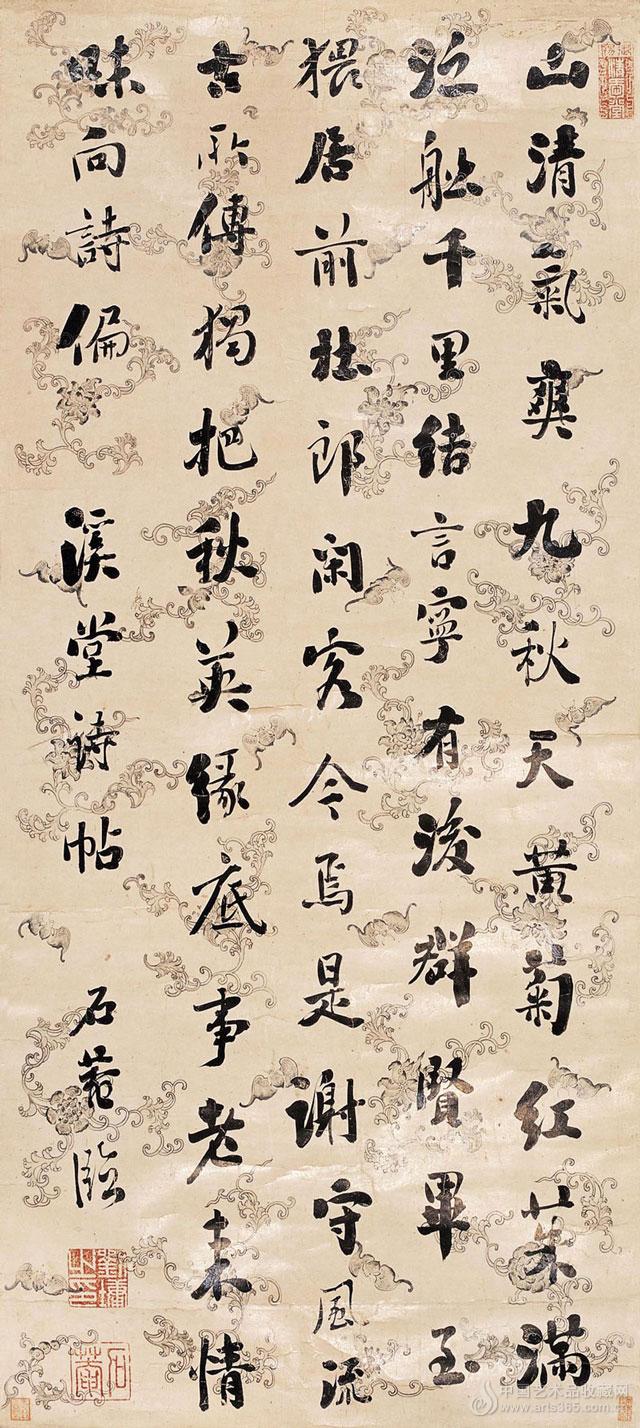 山清氣爽九秋天黃菊红茱滿
泛舩千里结言寧有後群賢畢至
猥居前杜郎闲客今焉是謝守風流
古所傳獨把秋英缘底事老来情
味向詩偏 溪堂诗帖
石菴臨
劉墉之印
石菴
中国艺术品收藏网
www.arts365.com.cn